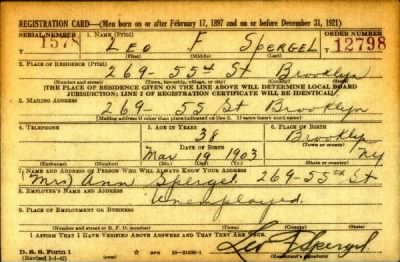 REGISTRATION CARD—(Men born on or after February 17, 1897 and on or before December 31, 1921)
SERIAL NUMBER 1. NAME (Print) ORDER NUMBER
1578 LEO F SPERGEL 12798
(First) (Middle) (Last)
2. PLACE OF RESIDENCE (Print)
269-55th St Brooklyn
(Number and street) (Town, township, village, or city) (County) (State)
[THE PLACE OF RESIDENCE GIVEN ON THE LINE ABOVE WILL DETERMINE LOCAL BOARD
JURISDICTION; LINE 2 OF REGISTRATION CERTIFICATE WILL BE IDENTICAL]
3. MAILING ADDRESS
269-55 St Brooklyn
[Mailing address if other than place indicated on line 2. If same insert word same]
4. TELEPHONE 5. AGE IN YEARS 6. PLACE OF BIRTH
38 Brooklyn
DATE OF BIRTH (Town or county)
Mar 19 1903 NY
(Mo.) (Day) (Yr.) (State or country)
7. NAME AND ADDRESS OF PERSON WHO WILL ALWAYS KNOW YOUR ADDRESS
Mrs Ann Spergel 269-55th St
8. EMPLOYER'S NAME AND ADDRESS
Unemployed
9. PLACE OF EMPLOYMENT OR BUSINESS
(Number and street or R. F. D. number) (Town) (County) (State)
I AFFIRM THAT I HAVE VERIFIED ABOVE ANSWERS AND THAT THEY ARE TRUE.
D. S. S. Form 1
Leo F Spergel
(Registrant's signature)